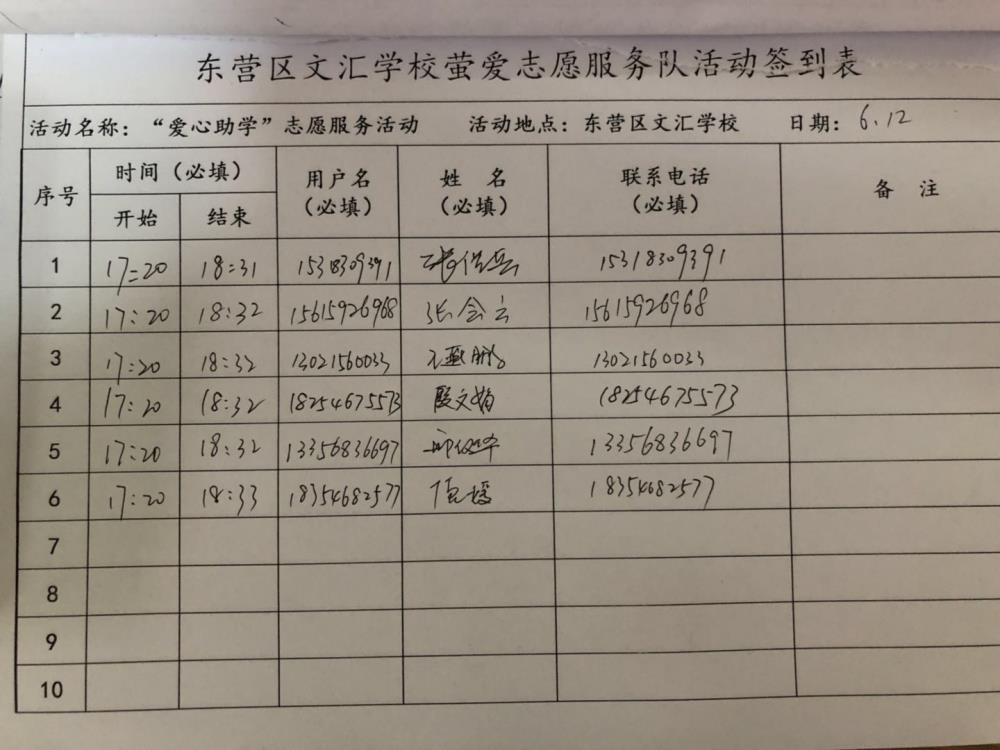 东营区文汇学校萤爱志愿服务队活动签到表
活动名称：“爱心助学”志愿服务活动 活动地点：东营区文汇学校 日期：6.12
序号 时间（必填） 用户名（必填） 姓 名（必填） 联系电话（必填） 备 注
开始 结束
1 17:20 18:31 15318309391 15318309391
2 17:20 18:32 15615926968 张会云 15615926968
3 17:20 18:32 13021560033 13021560033
4 17:20 18:32 18254675573 殷文娟 18254675573
5 17:20 18:32 13356836697 13356836697
6 17:20 18:33 18354682577 18354682577
7
8
9
10